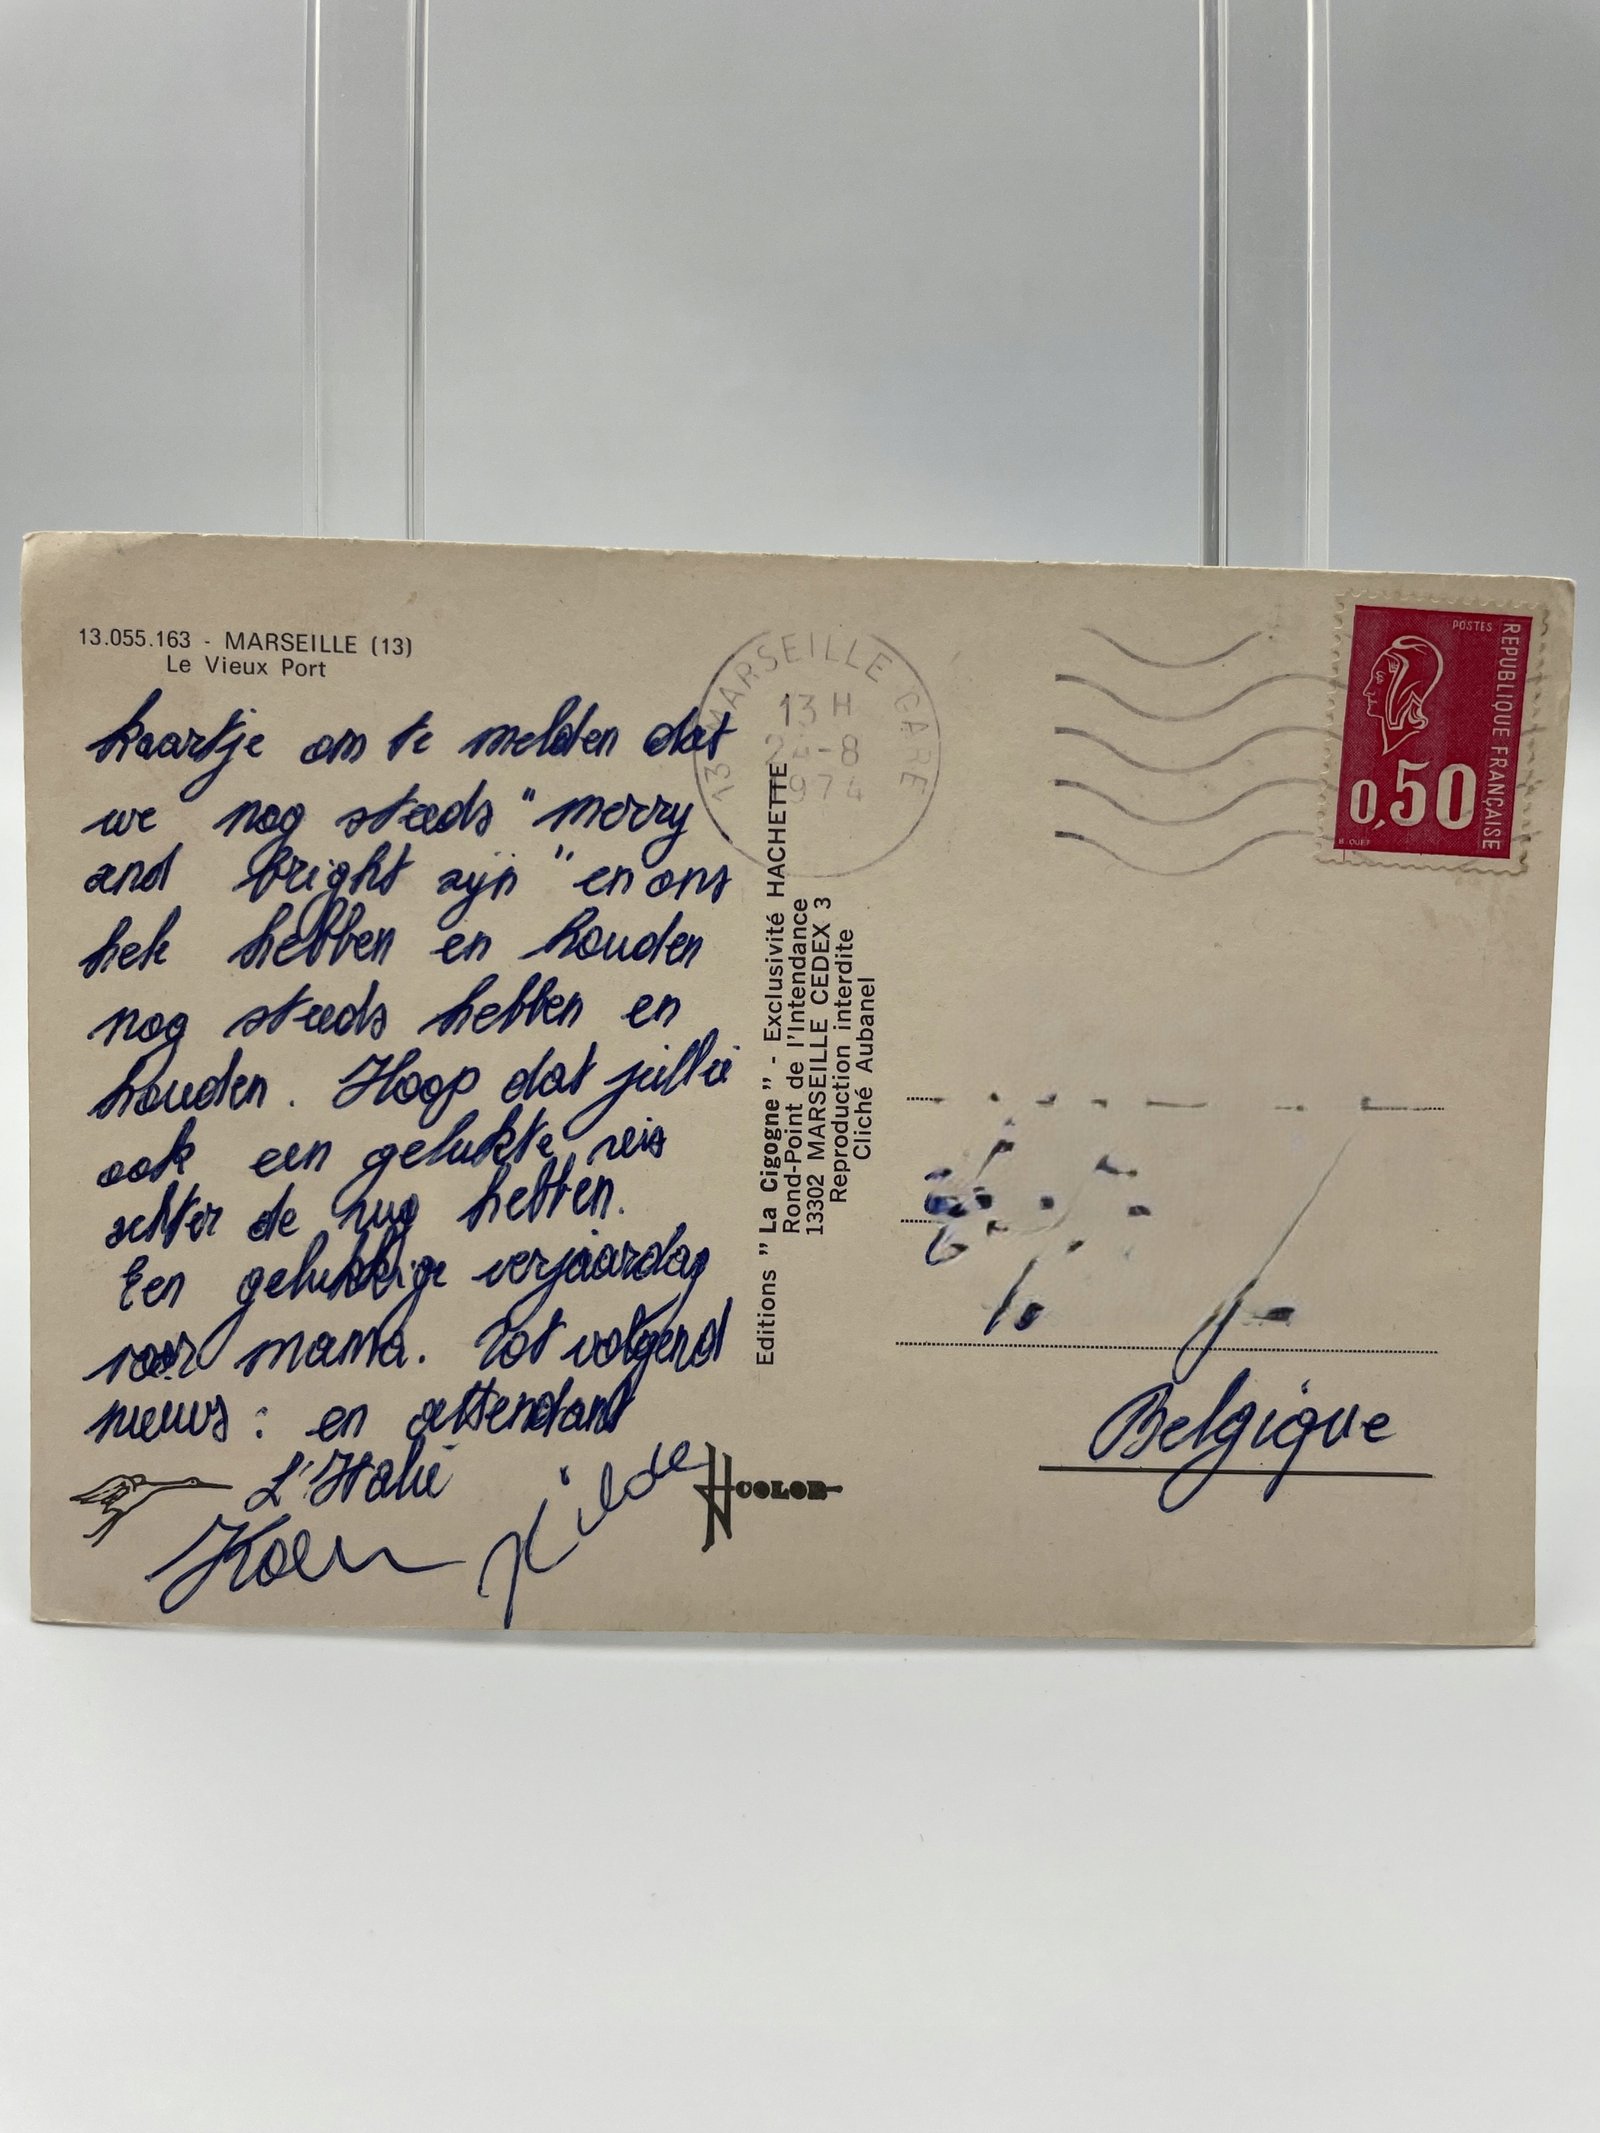 13.055.163 - MARSEILLE (13)
Le Vieux Port
kaartje om te melden dat
we nog steeds "merry
and bright zijn" en ons
hek hebben en houden
nog steeds hebben en
houden. Hoop dat jullie
ook een gelukte reis
achter de rug hebben.
Een gelukkige verjaardag
voor mama. Tot volgend
nieuws : en attendant
L'Italie
Koen Hilde
COLOR
Editions "La Cigogne" - Exclusivité HACHETTE
Rond-Point de l'Intendance
13302 MARSEILLE CEDEX 3
Reproduction interdite
Cliché Aubanel
13 MARSEILLE GARE
13 H
24-8
1974
POSTES
REPUBLIQUE FRANÇAISE
0,50
Belgique